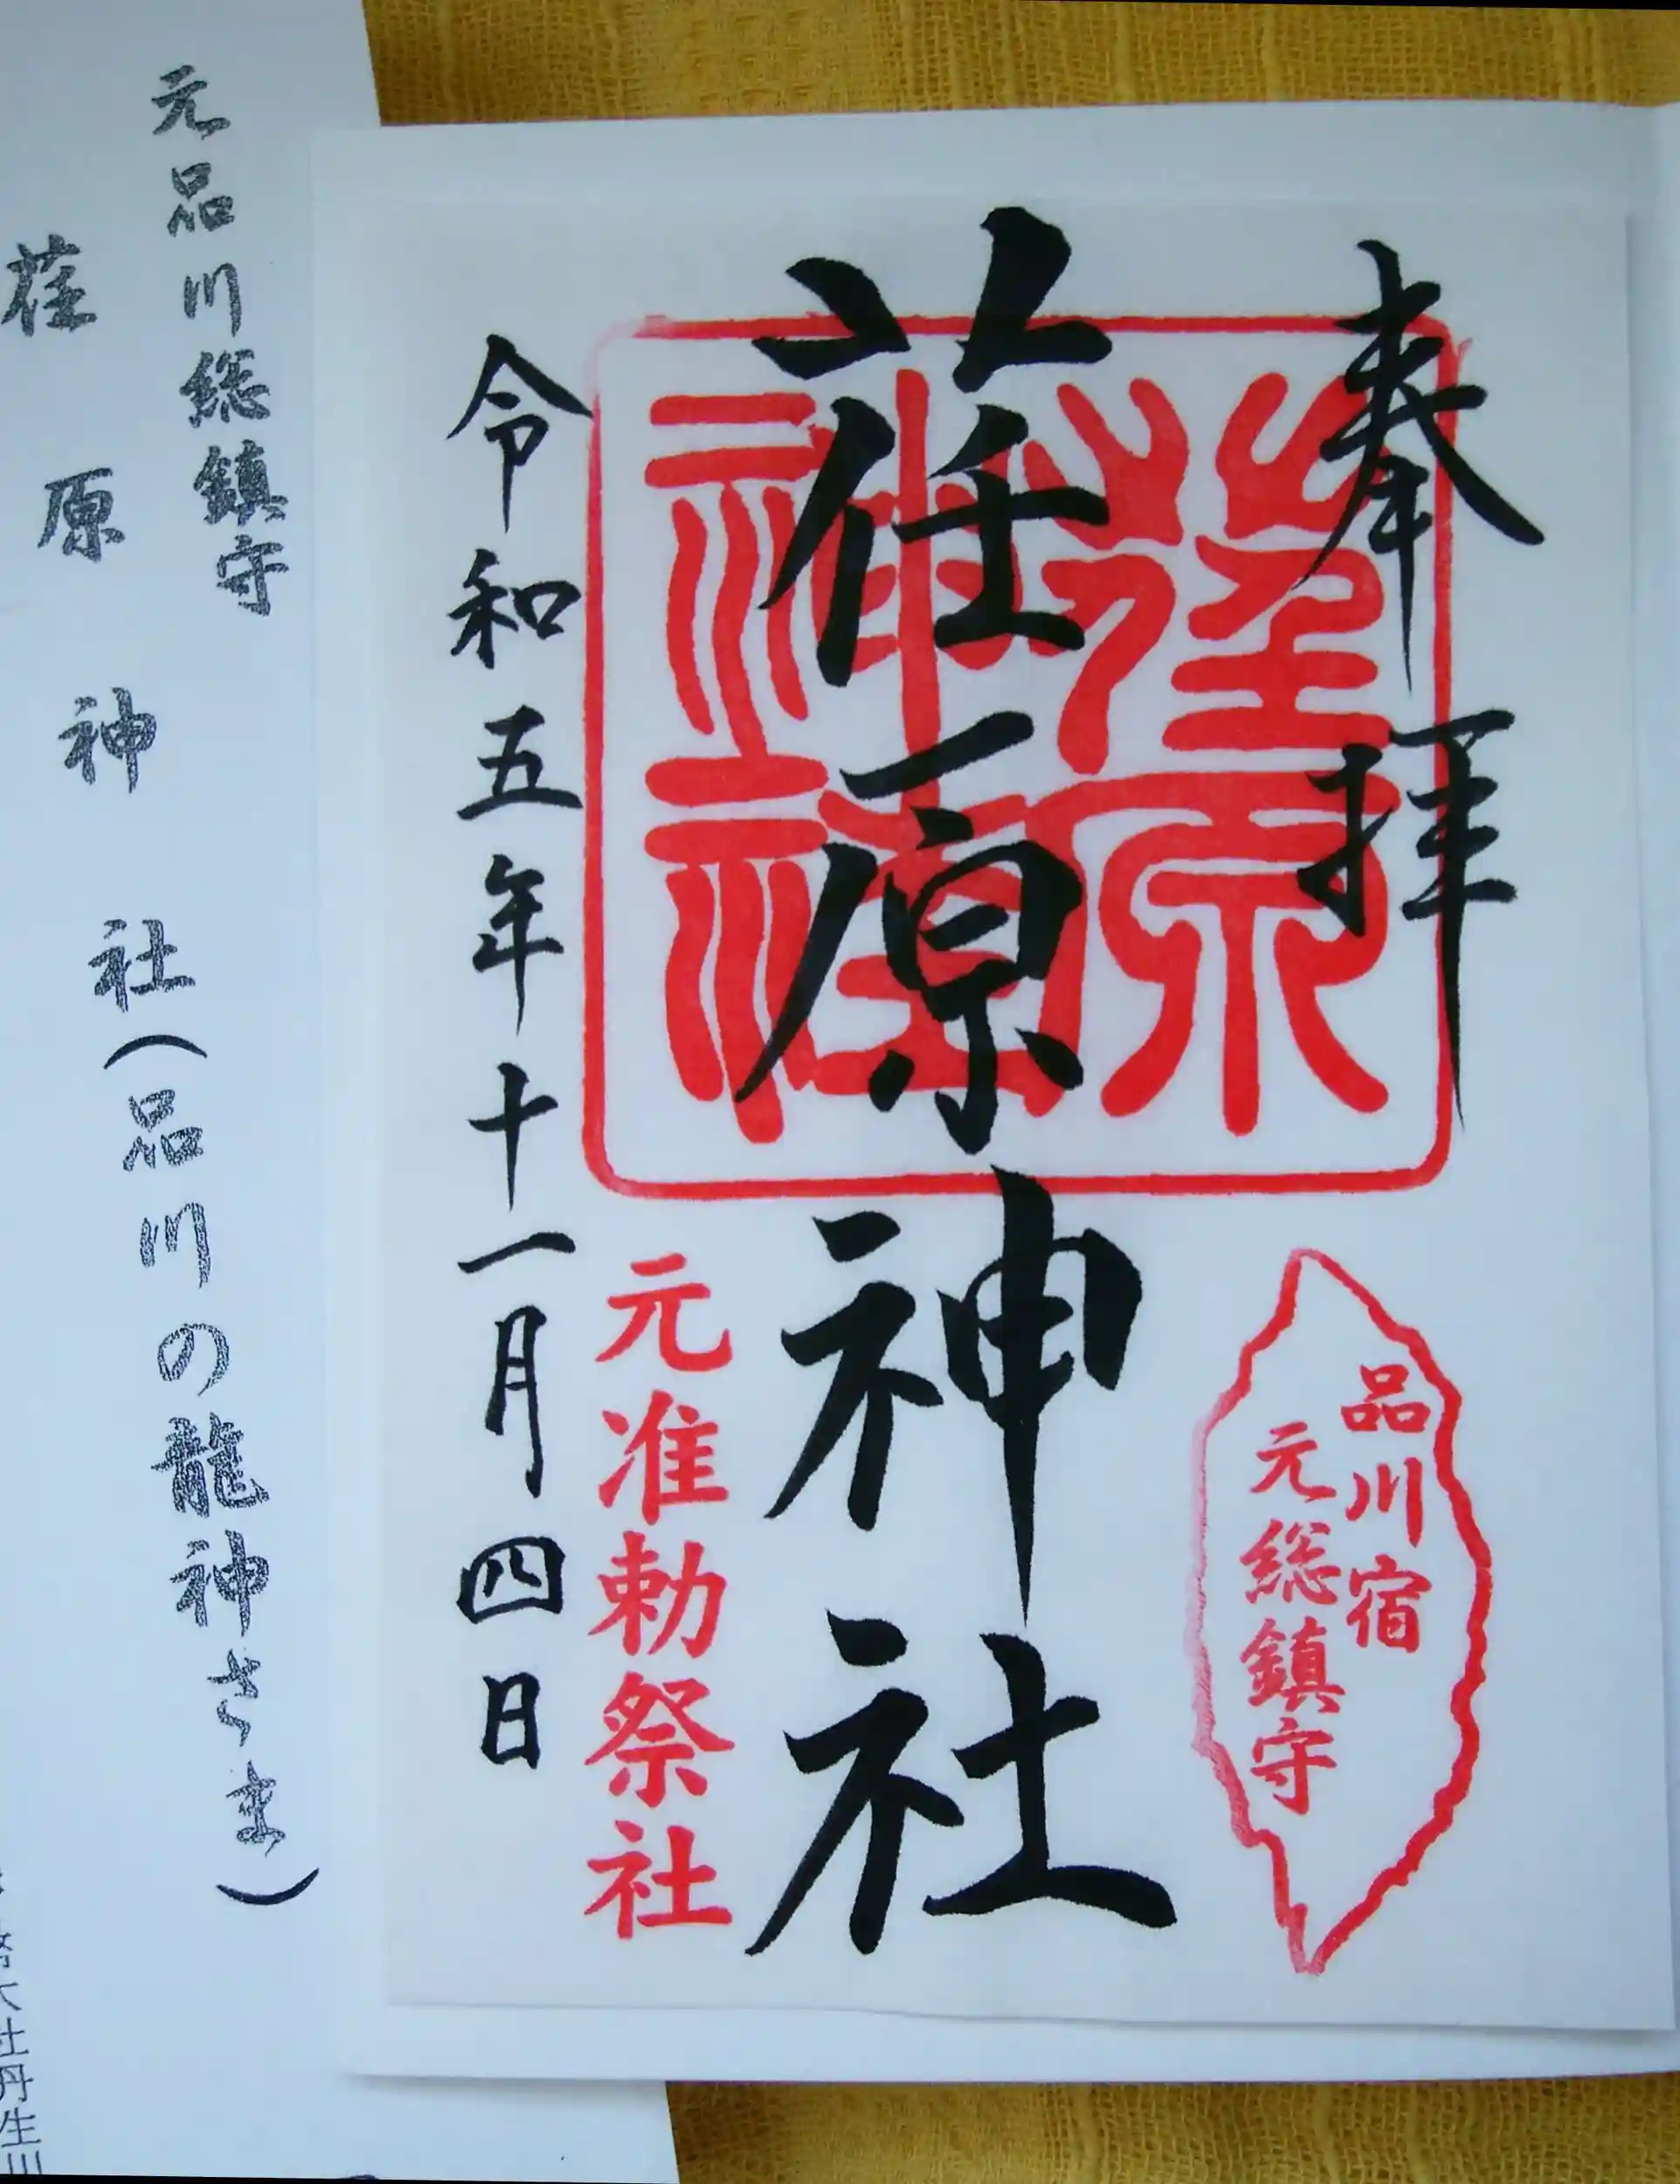 奉拝
荏原神社
荏原
神社
品川宿
元総鎮守
元准勅祭社
令和五年十一月四日
元品川総鎮守
荏原神社(品川の龍神さま)
大社丹生川